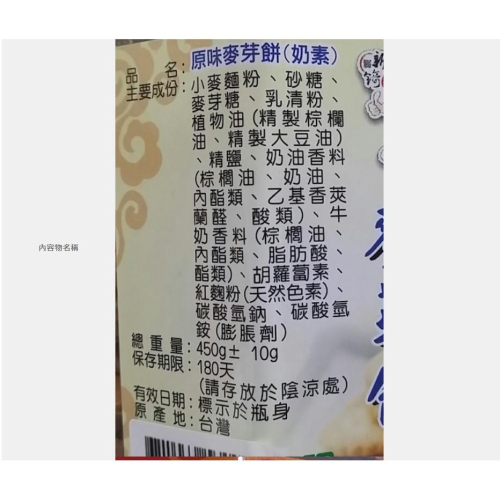 品　　名:原味麥芽餅(奶素)
主要成份:小麥麵粉、砂糖、
麥芽糖、乳清粉、
植物油(精製棕櫚
油、精製大豆油)
、精鹽、奶油香料
(棕櫚油、奶油、
內酯類、乙基香莢
蘭醛、酸類)、牛
奶香料(棕櫚油、
內酯類、脂肪酸、
酯類)、胡蘿蔔素、
紅麴粉(天然色素)、
碳酸氫鈉、碳酸氫
銨(膨脹劑)
總 重 量:450g± 10g
保存期限:180天
(請存放於陰涼處)
有效日期:標示於瓶身
原 產 地:台灣
內容物名稱